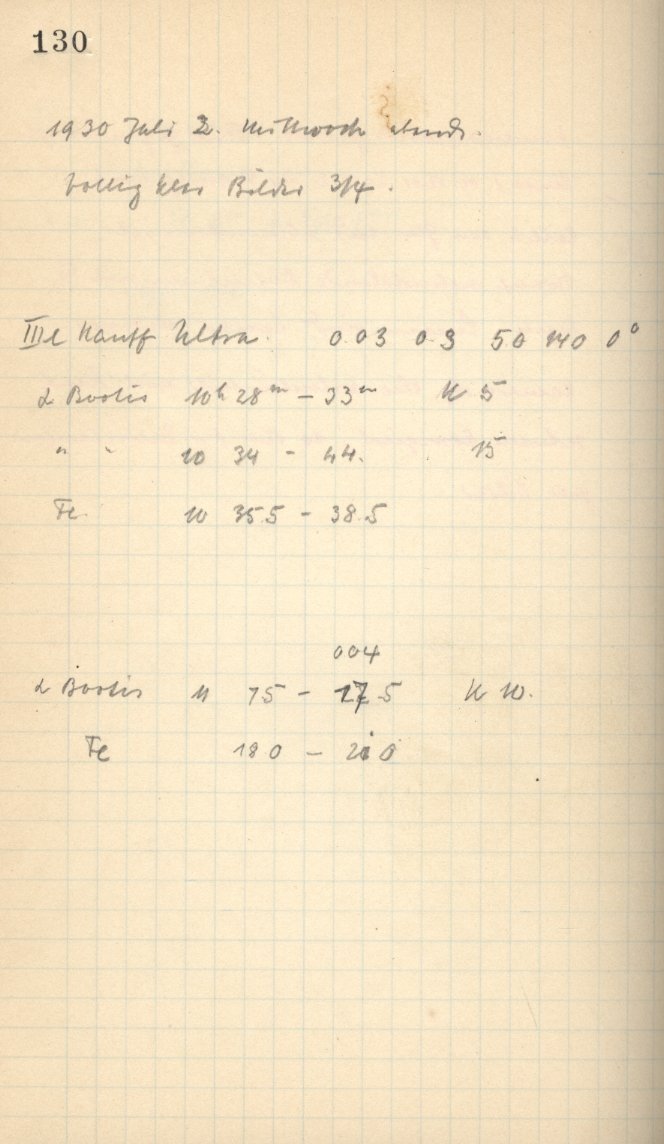 130
1930 Juli 2. Mittwoch abends.
völlig klar Bilder 3/4.
III Hauff Ultra. 0.03 0.3 50 140 0°
α Bootis 10h 28m – 33m K 5
" " 10 34 – 44. 15
Fe. 10 35.5 – 38.5
004
α Bootis 11 7.5 – 17.5 K 10.
Fe 18 0 – 21 0